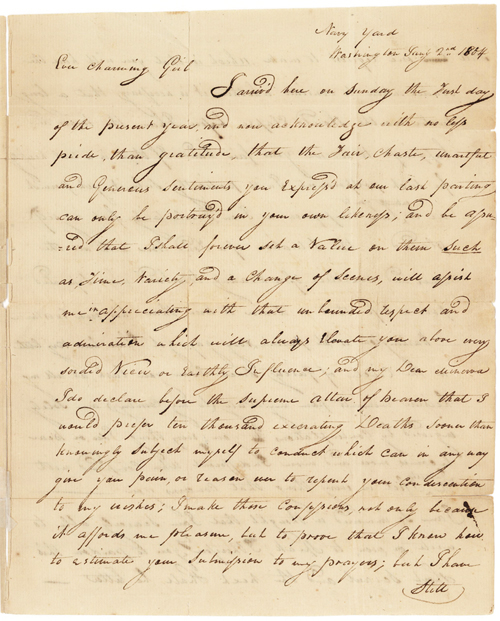 Navy Yard
Washington Jany 2nd 1804
Ever charming Girl
I arriv'd here on Sunday the First day
of the present Year, and now acknowledge with no less
pride, than gratitude, that the Fair, Chaste, unartful
and Generous Sentiments you Express'd at our last parting
can only be portray'd in your own likeness; and be assu
=red that I shall forever set a Value on them such
as Time, Variety, and a Change of Scenes, will assist
me in appreciating with that unbounded respect and
admiration which will always Elevate you above every
sorded View or Earthly Influence; and my Dear
I do declare before the Supreme altar of Heaven that I
would prefer ten thousand execrating Deaths sooner than
knowingly subject myself to conduct which can in any way
give you pain, or reason ever to repent your condescention
to my wishes; I make those Confessions, not only because
it affords me pleasure, but to prove that I know how
to estimate your Submission to my prayers; but I have
Still